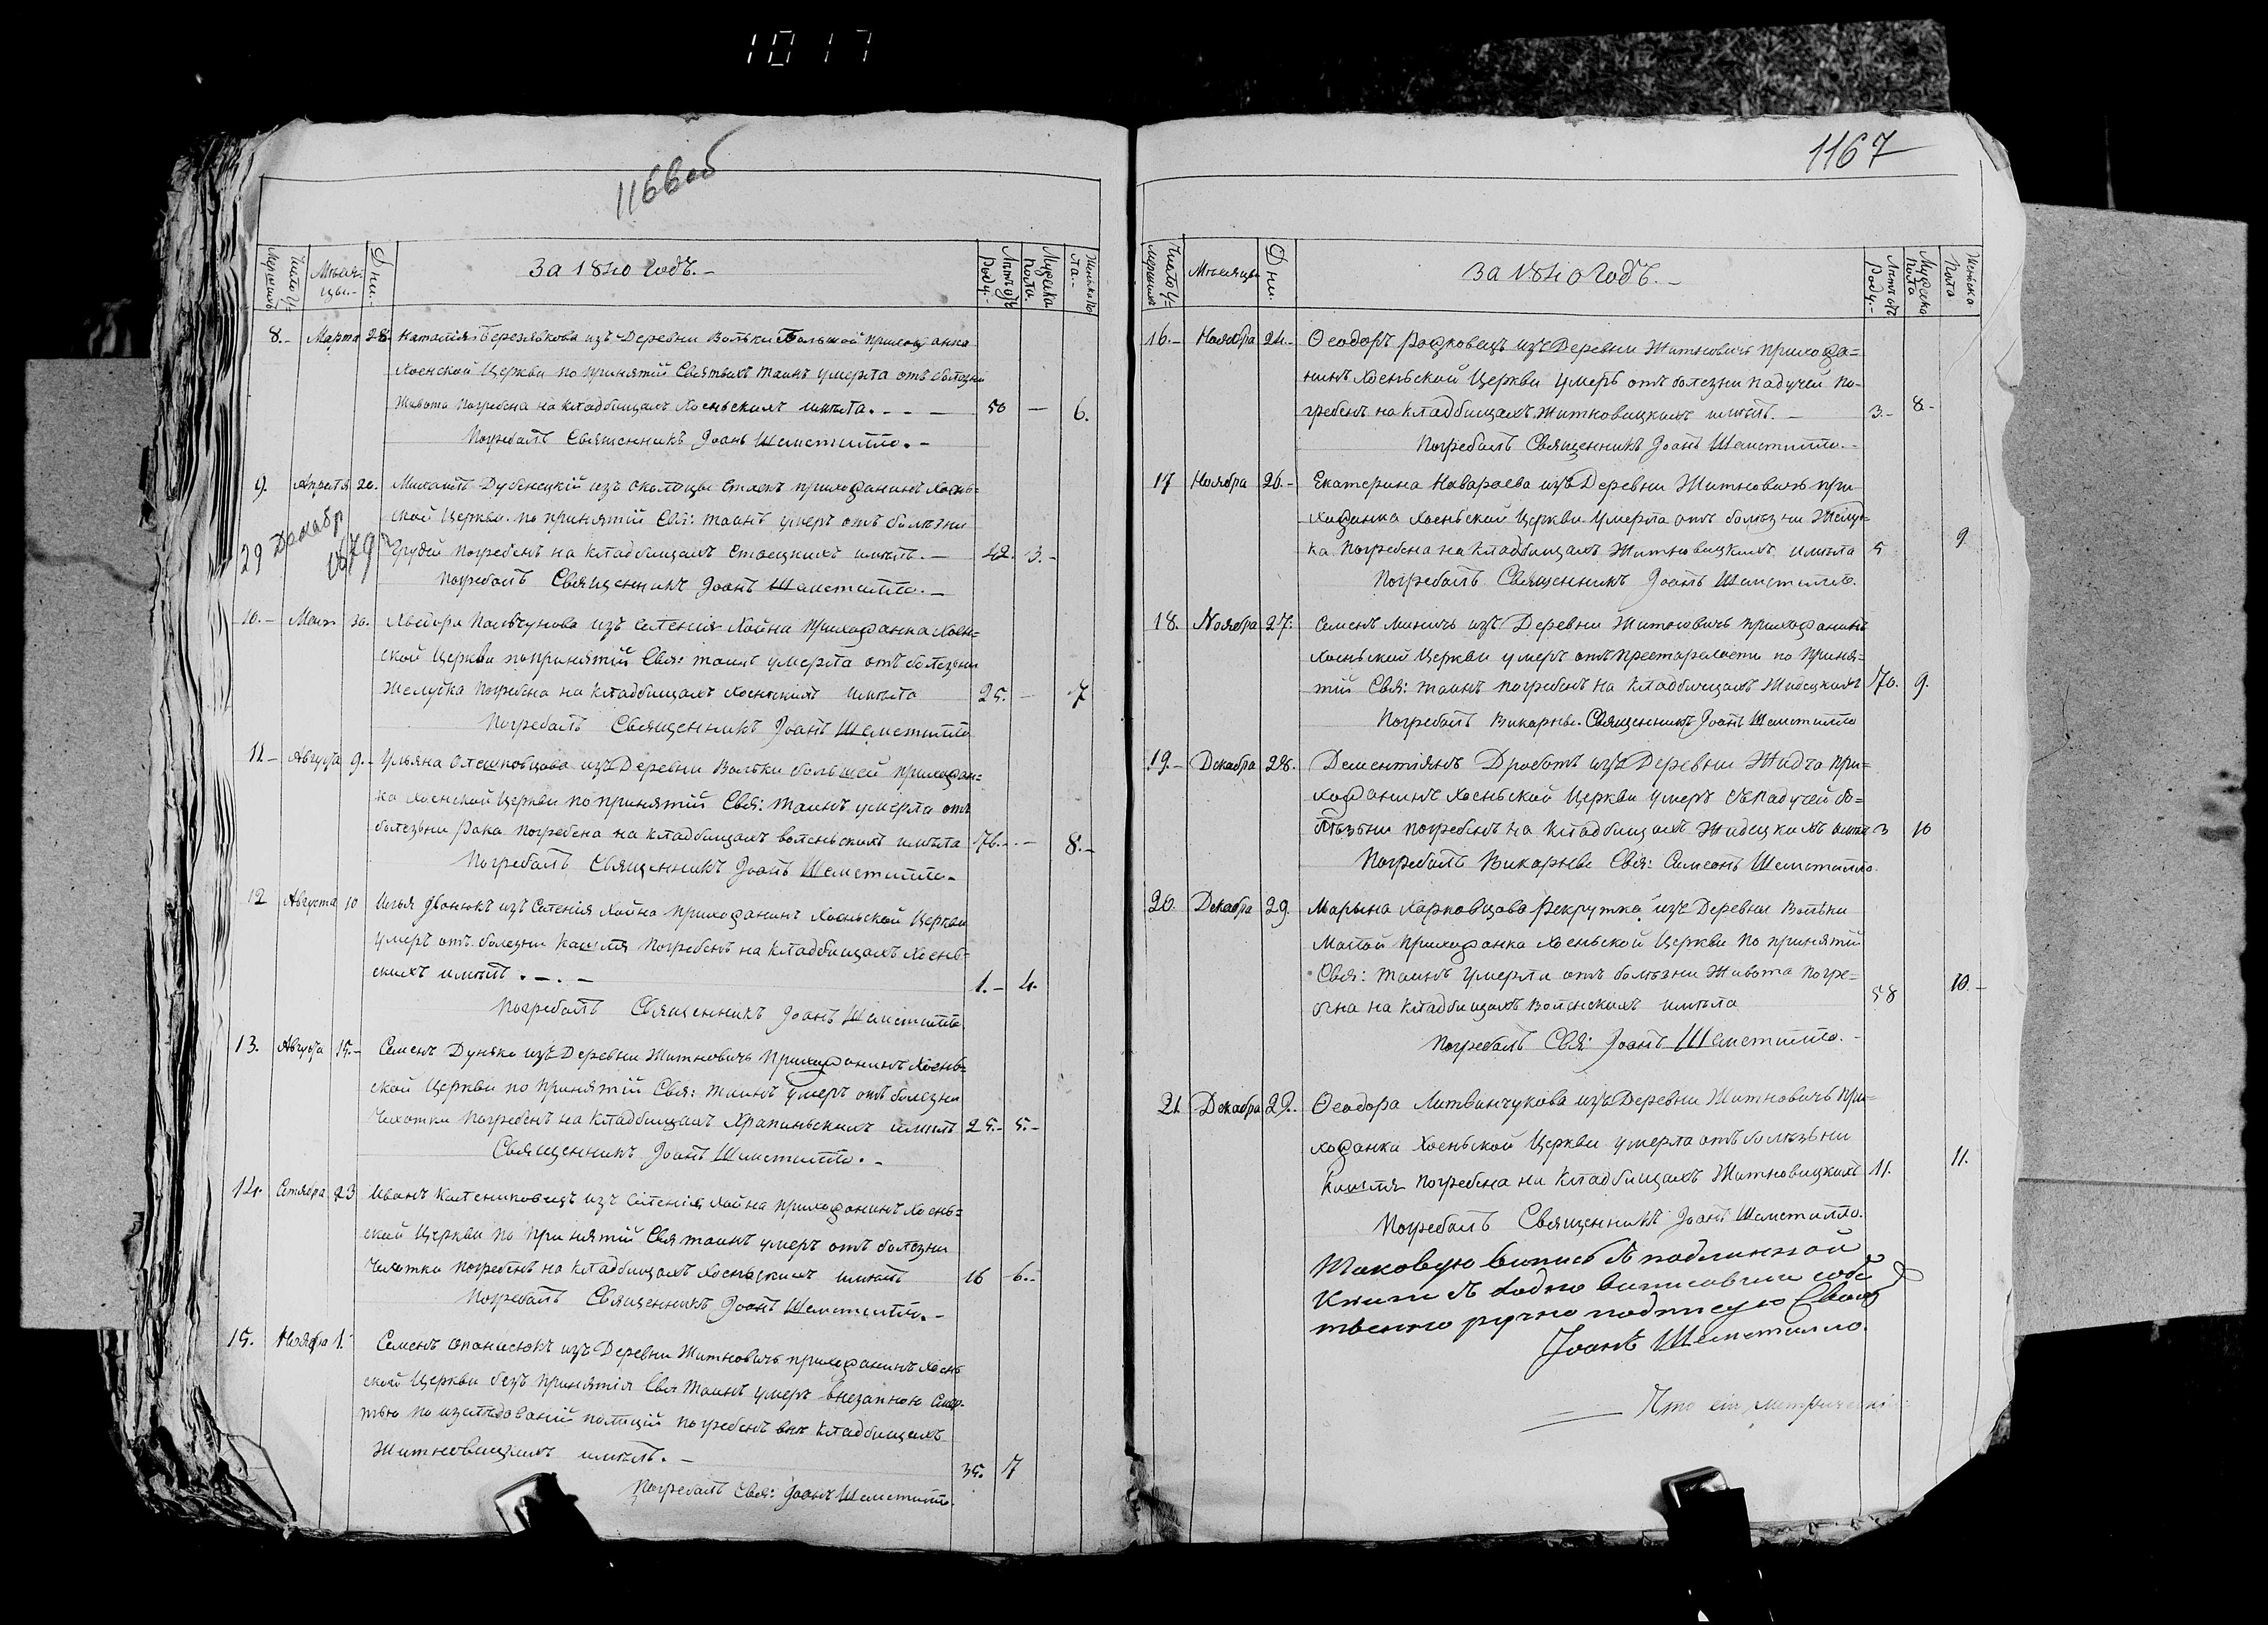 1017
1166 об
Число У-
мершихъ
Мѣся-
цы.-
Дни.-
За 1840 годъ.-
Лѣтъ отъ
Роду.-
Мужеска
Пола
Женска По
ла.-
8.- Марта 28 Наталія Березлякова изъ Деревни Вольки Большой прихожанка
Хоенской Церкви по принятій Святыхъ таинъ умерла отъ болезни
Живота погребена на кладбищахъ Хоеньскихъ имѣла. - - - 50 - 6.
Погребалъ Священникъ Іоанъ Шеметилло.-
9. Апреля 20. Михаилъ Дубенецкій изъ околоцы прихожанинъ Хоень=
ской Церкви по принятій Свя: таинъ умеръ отъ болѣзни
Грудей погребенъ на кладбищахъ Стаецкихъ имѣлъ.- 42. 3.-
29 Декабр
1879
Погребалъ Священникъ Іоанъ Шеметилло.-
10.- Маія 30. изъ селенія Хойна прихожанка Хоен=
ской Церкви попринятій Свя: таинъ умерла отъ болезьни
Желудка погребена на кладбищахъ Хоенскихъ имѣла 25. - 7
Погребалъ Священникъ Іоанъ Шеметилло
11.- Августа 9.- Ульяна Олешковцова изъ Деревни Вольки большей прихожан=
ка Хоенской Церкви по принятій Свя: таинъ умерла отъ
болезьни Рака погребена на кладбищахъ воленьскихъ имѣла 76.- - 8.-
Погребалъ Священникъ Іоанъ Шеметилло.
12 Августа 10 Илья Іванюкъ изъ Селенія Хойна прихожанинъ Хоеньской Церкви
умеръ отъ болезни Кашля погребенъ на кладбищахъ Хоень=
скихъ имѣлъ.-.- 1.- 4.
Погребалъ Священникъ Іоанъ Шеметилло.
13. Августа 15.- Семенъ Дунько изъ Деревни Житновичъ прихожанинъ Хоень=
ской Церкви по принятій Свя: таинъ умеръ отъ болезни
Чахотки погребенъ на кладбищахъ Храпиньскихъ имѣлъ 25.- 5.-
Священникъ Іоанъ Шеметилло.-
14. 23 Иванъ Калениковецъ изъ Селенія Хойна прихожанинъ Хоень=
ской Церкви по принятій Свя таинъ умеръ отъ болезни
Чахотки погребенъ на кладбищахъ Хоеньскихъ имѣлъ 16 6.-
Погребалъ Священникъ Іоанъ Шеметилло.-
15. Ноября 1. Семенъ Опанасюкъ изъ Деревни Житновичъ прихожанинъ Хоень
ской Церкви безъ принятія Свя таинъ умеръ внезапною смер-
тью по изследованій полицій погребенъ внѣ кладбищахъ
Житновицкихъ имѣлъ.- 35. 7
Погребалъ Свя: Іоанъ Шеметилло.
1167
Число У=
мершихъ
Мѣсяцы
Дни.
За 1840 Годъ.-
Лѣтъ отъ
Роду.-
Мужеска
Пола
Женска
Пола
16.- Ноября 24.- Ѳеодоръ Рожковецъ изъ Деревни Житновичъ прихожа=
нинъ Хоеньской Церкви умеръ отъ болезни падучей по-
гребенъ на кладбищахъ Житновицкихъ имѣлъ.- 3.- 8.-
Погребалъ Священникъ Іоанъ Шеметилло.-
17 Ноября 26.- Екатерина Навароева изъ Деревни Житновичъ при
хожанка Хоеньской Церкви умерла отъ болѣзни Желуд-
ка погребена на кладбищахъ Житновицкихъ имѣла 5 9
Погребалъ Священникъ Іоанъ Шеметилло.
18. Ноября 27. Семенъ Миничъ изъ Деревни Житновичъ прихожанинъ
Хоеньской Церкви умеръ отъ престарелости по приня=
тій Свя: таинъ погребенъ на кладбищахъ Жидецкихъ 70. 9.
Погребалъ Викарны. Священникъ Іоанъ Шеметилло
19.- Декабра 28. Дементіянъ Дроботъ изъ Деревни Жидча при=
хожанинъ Хоеньской Церкви умеръ съ падучей бо=
лѣзьни погребенъ на кладбищахъ Жидецкихъ имѣл 3 10
Погребалъ Викарны Свя: Симеонъ Шеметилло.
20. Декабра 29. Марьяна Харковцова Рекрутка изъ Деревни Вольки
Малой прихожанка Хоеньской Церкви по принятій
Свя: таинъ умерла отъ болѣзни Живота погре=
бена на кладбищахъ Воленскихъ имѣла 58 10.-
Погребалъ Свя: Іоанъ Шеметилло.-
21. Декабра 29. Ѳеодора Литвинчукова изъ Деревни Житновичъ при=
хожанка Хоеньской Церкви умерла отъ болѣзьни
Кашля погребена на кладбищахъ Житновицкихъ 11. 11.
Погребалъ Священникъ Іоанъ Шеметилло.
Таковую выпись съ подлинной
Книги съ водно выписавши собс
твенно ручно подписую Свящ
Іоанъ Шеметилло.
Что сія метрическ